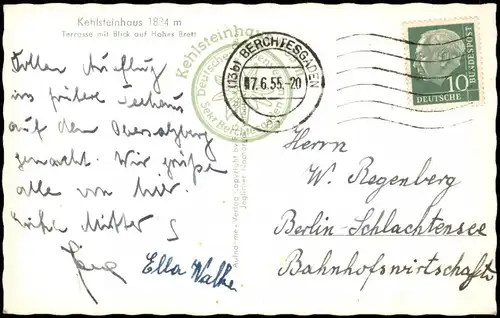 Kehlsteinhaus 1834 m
Terrasse mit Blick auf Hohes Brett
Tollen Ausflug
ins frühere Teehaus
auf dem Obersalzberg
gemacht. Wir grüße
alle von hier.
Ella
Kehlsteinhaus
Deutscher
Sekt. Berchtesgaden
(13b) BERCHTESGADEN
17.6.55.-20
10
DEUTSCHE
BUNDESPOST
Aufnahme - Verlag Copyright by
Jeglicher
Herrn
W. Regenberg
Berlin-Schlachtensee
Bahnhofswirtschaft